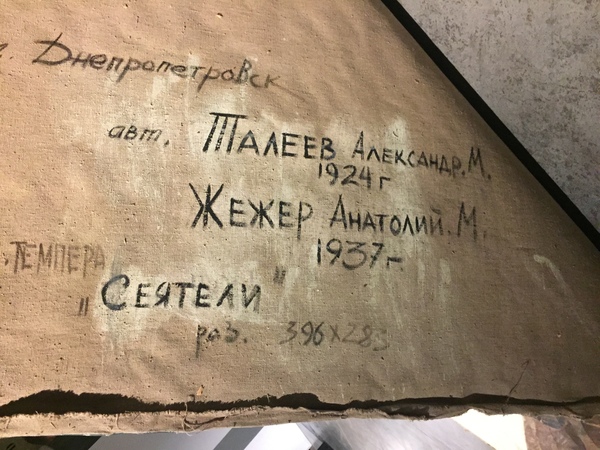 г. Днепропетровск
авт. ТАЛЕЕВ АЛЕКСАНДР. М.
1924 г
ЖЕЖЕР АНАТОЛИЙ. М.
1937 г.
ТЕМПЕРА
„СЕЯТЕЛИ"
раз. 396х283